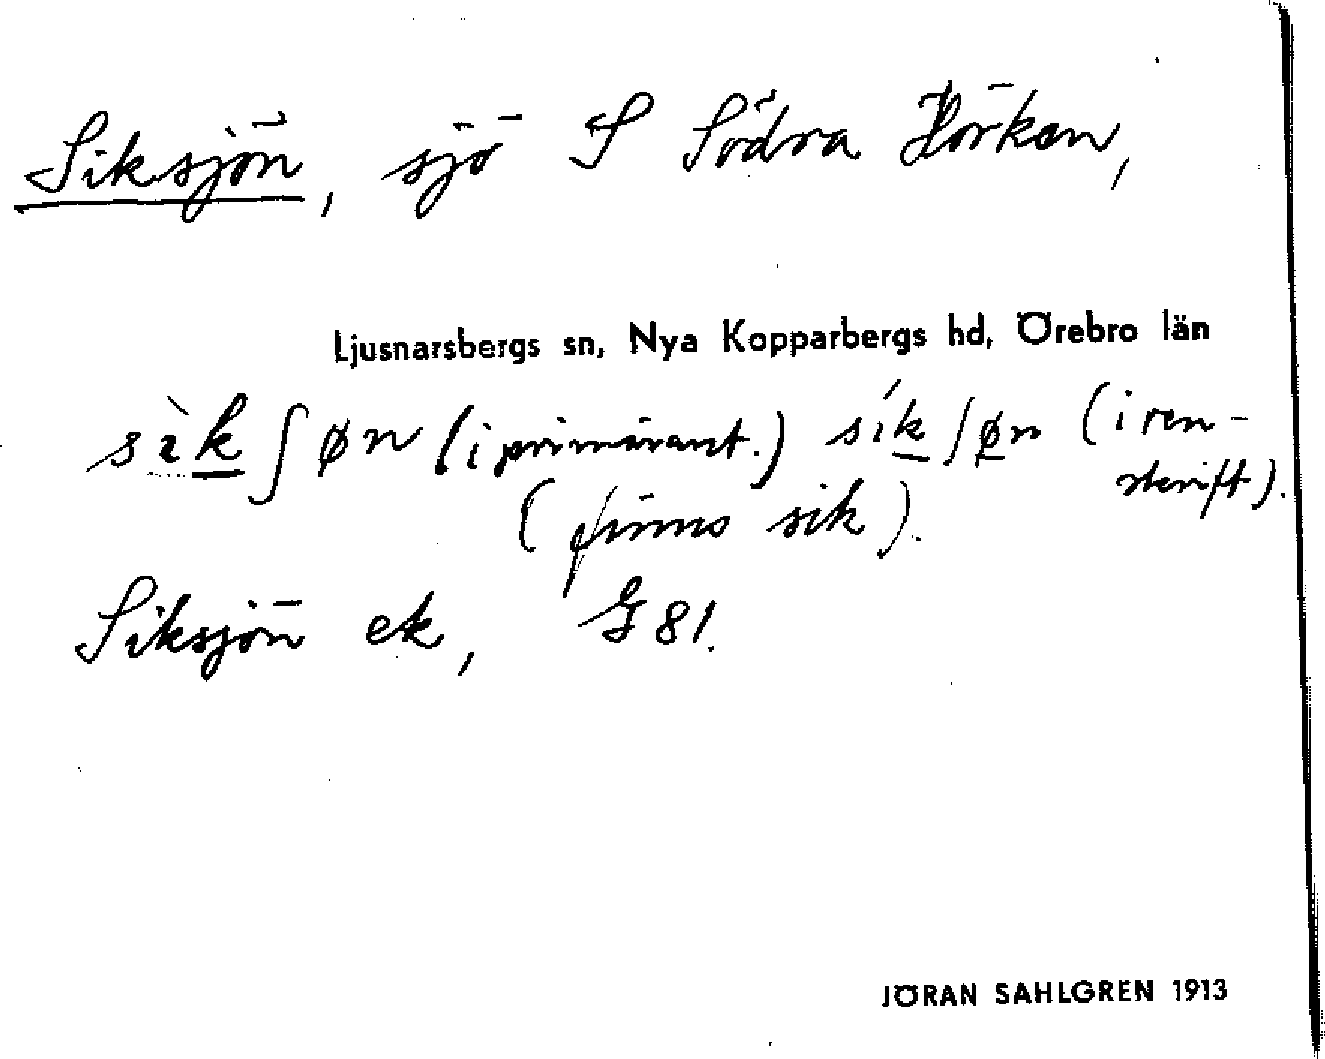 Siksjön, sjö S Södra Hörken,
Ljusnarsbergs sn, Nya Kopparbergs hd, Örebro län
sìkʃøn (i primärant.) síkʃøn (i ren-
skrift).
(finns sik).
Siksjön ek, G 81.
JÖRAN SAHLGREN 1913